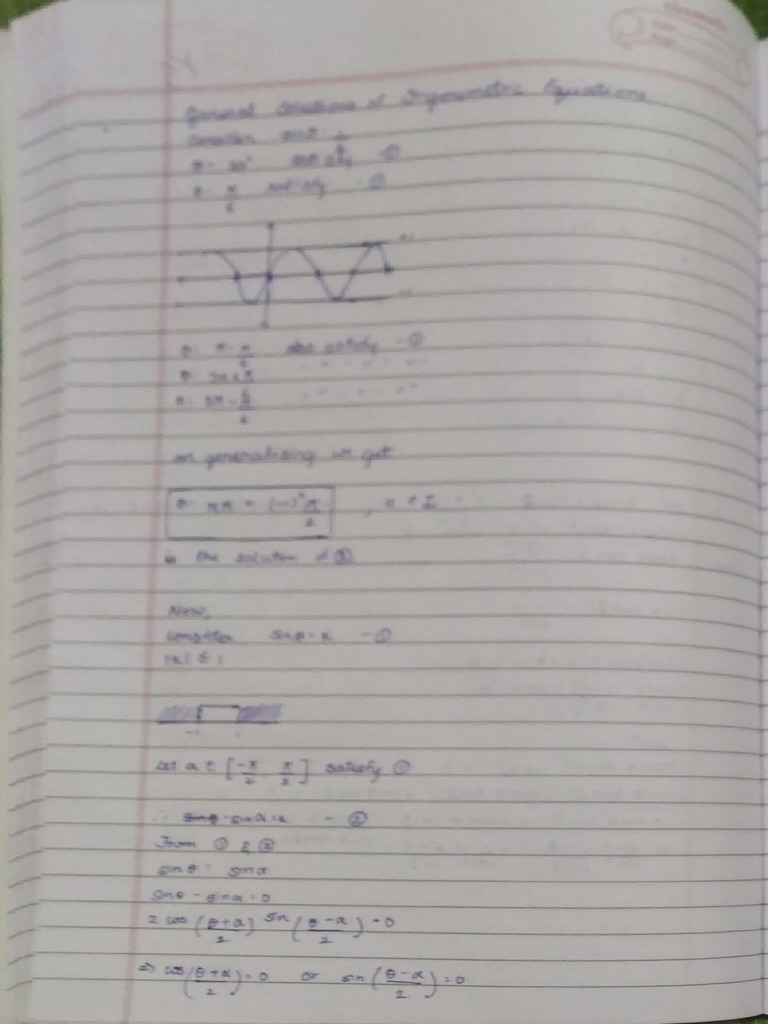 General Solutions of Trigonometric Equations
Consider sinθ = 1/2
θ = 30° satisfy - ①
θ = π/6 satisfy - ①
θ = π - π/6 also satisfy - ①
θ = 2π + π/6 " " " "
θ = 3π - π/6 " " " "
on generalising we get
θ = nπ + (-1)ⁿ π/6 , n ∈ I
is the solution of ①
Now,
consider sinθ = k - ①
|k| ≤ 1
Let α ∈ [-π/2 π/2] satisfy ①
∴ sinα = k - ②
From ① & ②
sinθ = sinα
sinθ - sinα = 0
2 cos (θ+α)/2 sin (θ-α)/2 = 0
⇒ cos (θ+α)/2 = 0 or sin (θ-α)/2 = 0